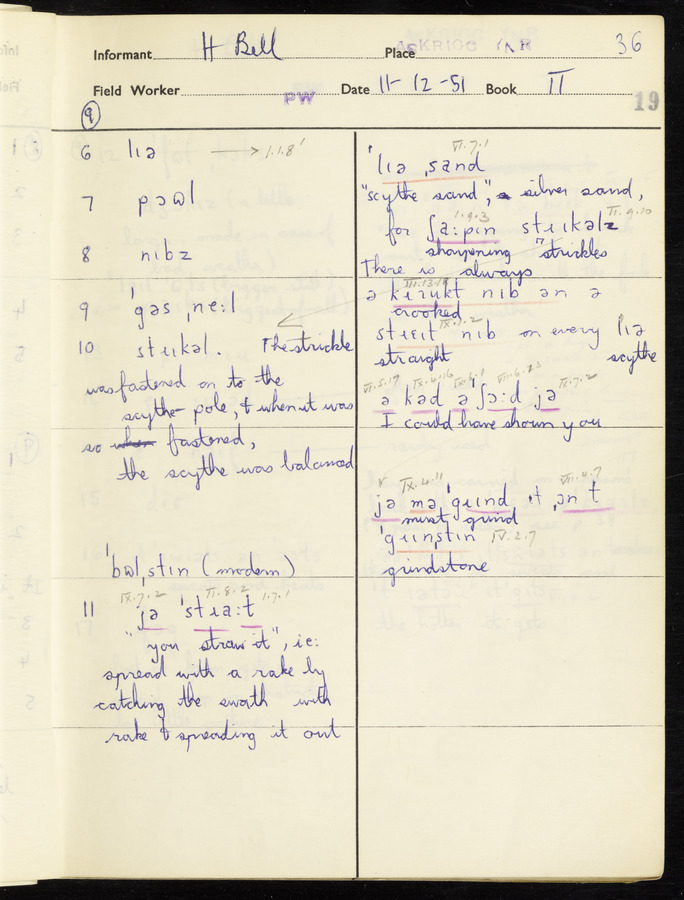 Informant H Bell Place ASKRIGG Y.N.R 36
Field Worker PW Date 11-12-51 Book II 19
9
6 lɪə → 1.1.8
7 pɔʊl
8 nɪbz
9 ˈgəs ˌneːl
10 stɹɪkəl. The strickle
was fastened on to the
scythe-pole, & when it was
so fastened,
the scythe was balanced
(modern)
IX.7.2 II.8.2 1.7.1
11 jə ˈstɹaːt
"you straw it", i.e:
spread with a rake by
catching the swath with
rake & spreading it out
VI.7.1
ˈlɪə ˌsand
"scythe sand", silver sand,
1.9.3 II.9.10
for ʃaːpɪn stɹɪkəlz
sharpening strickles
There is always
ə kɹʊkt nɪb ən ə
crooked
stɹeɪt nɪb on every lɪə
straight scythe
ə kəd ə ˈʃɔːd jə
I could have shown you
IX.4.11 VII.4.7
jə mə ˈgɹɪnd ɪt ˌən t
must grind
ˈgɹɪnstɪn IV.2.7
grindstone